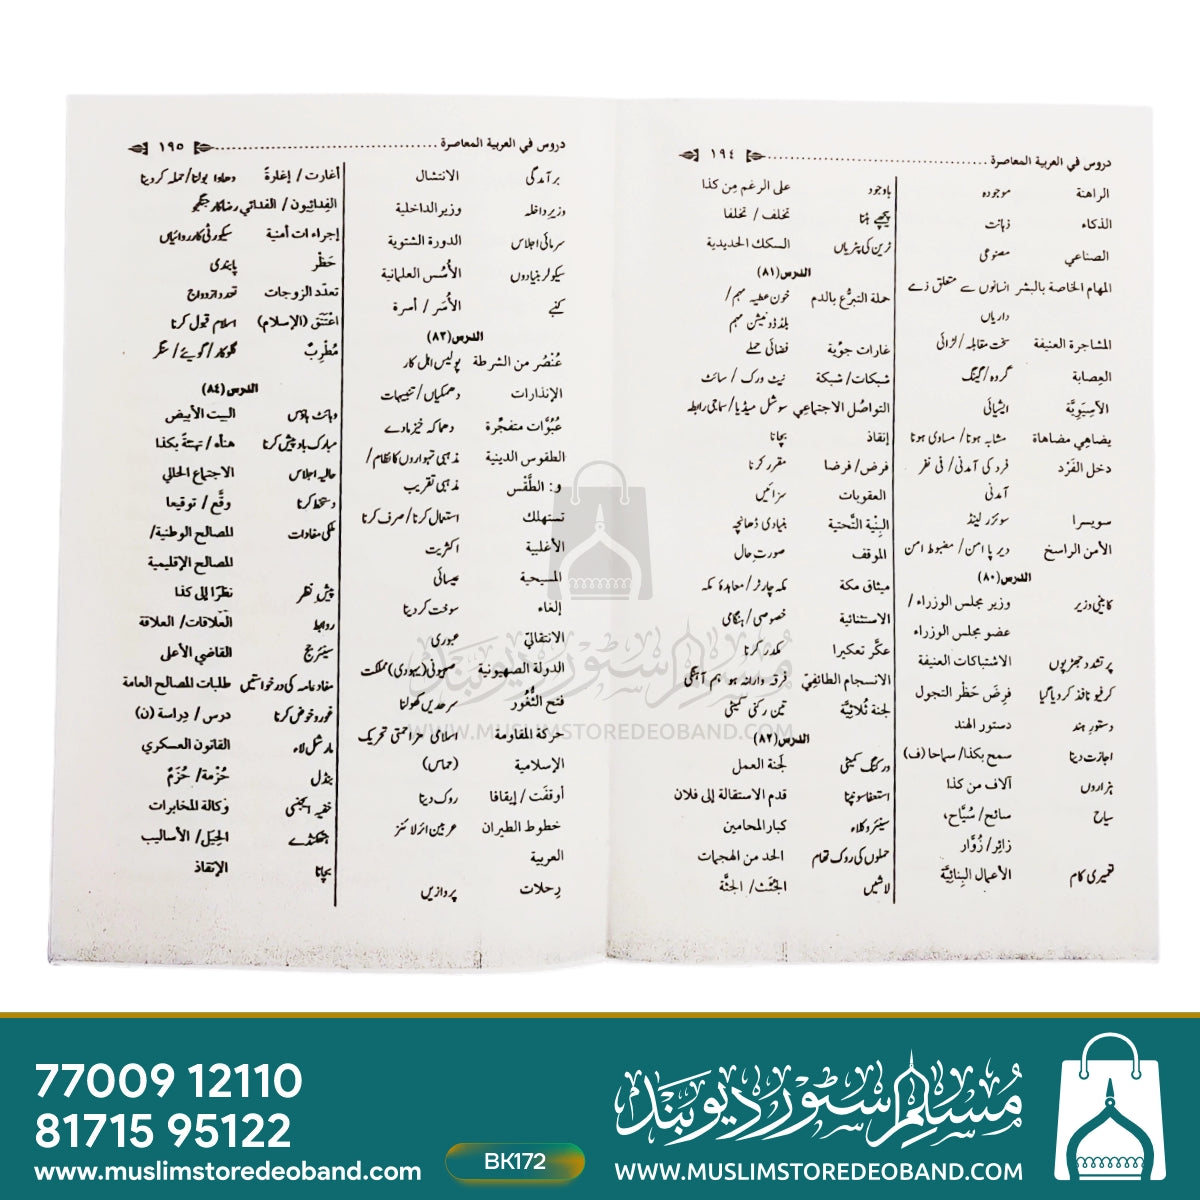 دروس في العربية المعاصرة ........ ١٩٤
الراهنة موجودہ
الذكاء ذہانت
الصناعي مصنوعی
المهام الخاصة بالبشر انسانوں سے متعلق ذمے
داریاں
المشاجرة العنيفة سخت مقابلہ/ لڑائی
العِصابة گروہ/ گینگ
الآسِيَوِيَّة ایشیائی
يضاهي مضاهاة مشابہ ہونا/ مساوی ہونا
دخل الفَرْد فرد کی آمدنی/ فی نفر
آمدنی
سويسرا سوئزر لینڈ
الأمن الراسخ دیر پا امن/ مضبوط امن
الدرس(٨٠)
کابینی وزیر وزير مجلس الوزراء /
عضو مجلس الوزراء
پرتشدد جھڑپوں الاشتباكات العنيفة
کرفیو نافذ کر دیا گیا فرضَ حَظْر التجول
دستور ہند دستور الهند
اجازت دینا سمح بكذا/ سماحا (ف)
ہزاروں آلاف من كذا
سیاح سائح/ سُيَّاح،
زائِر/ زُوَّار
تعمیری کام الأعمال البِنائِيَّة
باوجود على الرغم مِن كذا
پیچھے ہٹنا تخلف / تخلفا
ٹرین کی پٹریاں السكك الحديدية
الدرس(٨١)
حملة التبرُّع بالدم خون عطیہ مہم/
بلڈ ڈونیشن مہم
غارات جوِّية فضائی حملے
شبكات/ شبكة نیٹ ورک / سائٹ
التواصُل الاجتماعِي سوشل میڈیا/ سماجی رابطہ
إنقاذ بچانا
فرض/ فرضا مقرر کرنا
العقوبات سزائیں
البِنْية التَّحتية بنیادی ڈھانچہ
الموقف صورت حال
ميثاق مكة مکہ چارٹر/ معاہدۂ مکہ
الاستثنائية خصوصی/ ہنگامی
عكَّر تعكيرا مکدر کرنا
الانسجام الطائفِيّ فرقہ وارانہ ہم آہنگی
لجنة ثُلاثِيَّة تین رکنی کمیٹی
الدرس(٨٢)
ورکنگ کمیٹی لَجنة العمل
استعفا سونپنا قدم الاستقالة إلى فلان
سینئر وکلاء كبار المحامين
حملوں کی روک تھام الحد من الهجمات
لاشیں الجُثَث/ الجُثَّة
دروس في العربية المعاصرة ........ ١٩٥
برآمدگی الانتشال
وزیر داخلہ وزير الداخلية
سرمائی اجلاس الدورة الشتوية
سیکولر بنیادوں الأُسُس العلمانية
کنبے الأُسَر / أسرة
الدرس(٨٣)
عُنْصُر من الشرطة پولیس اہل کار
الإنذارات دھمکیاں/ تنبیہات
عُبُوَّات متفجِّرة دھماکہ خیز مادے
الطقوس الدينية مذہبی تہواروں کا نظام/
و: الطَّقْس مذہبی تقریب
تستهلك استعمال کرنا/ صرف کرنا
الأغلبية اکثریت
المسيحية عیسائی
إلغاء سوخت کر دینا
الانتقاليّ عبوری
الدولة الصهيونية صہیونی (یہودی) مملکت
فتح الثُّغُور سرحدیں کھولنا
حركة المقاومة اسلامی مزاحمتی تحریک
الإسلامية (حماس)
أوقفَت/ إيقافا روک دینا
خطوط الطيران عربین ائر لائنز
العربية
رِحلات پروازیں
أغارت/ إغارةً دھاوا بولنا/ حملہ کر دینا
الفِدائِيون/ الفدائي رضا کار جنگجو
إجراءات أمنية سیکورٹی کارروائیاں
حَظْر پابندی
تعدّد الزوجات تعدد ازدواج
اعْتَنَق (الإسلام) اسلام قبول کرنا
مُطْرِبٌ گلوکار/ گویئے/ سنگر
الدرس(٨٤)
وہائٹ ہاؤس البيت الأبيض
مبارک باد پیش کرنا هنأه/ تهنئةً بكذا
حالیہ اجلاس الاجتماع الحالي
دستخط کرنا وقَّع/ توقيعا
ملکی مفادات المصالح الوطنية/
المصالح الإقليمية
پیش نظر نظرًا إلى كذا
روابط العَلاقات/ العلاقة
سینئر جج القاضي الأعلى
مفاد عامہ کی درخواستیں طلبات المصالح العامة
غور و خوض کرنا درس/ دِراسة (ن)
مارشل لاء القانون العسكري
بنڈل حُزْمة/ حُزَمٌ
خفیہ ایجنسی وَكالة المخابرات
ہتھکنڈے الحِيَل/ الأساليب
بچانا الإنقاذ
مسلم سٹور دیوبند
WWW.MUSLIMSTOREDEOBAND.COM
77009 12110
81715 95122
www.muslimstoredeoband.com
BK172
مسلم سٹور دیوبند
WWW.MUSLIMSTOREDEOBAND.COM